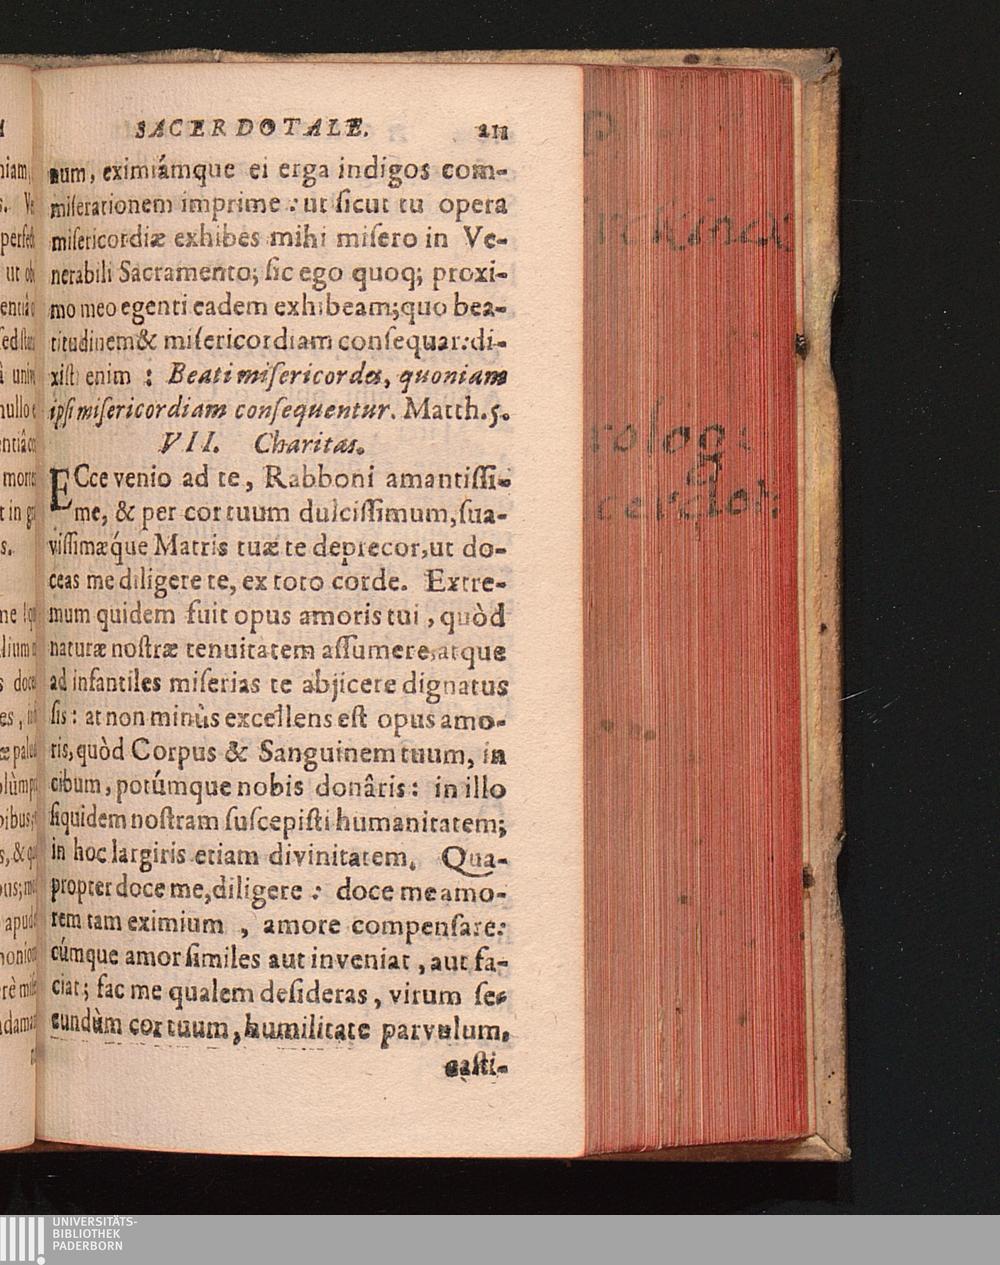 SACERDOTALE. 211
num, eximiámque ei erga indigos com-
miſerationem imprime: ut ſicut tu opera
miſericordiæ exhibes mihi miſero in Ve-
nerabili Sacramento; ſic ego quoq; proxi-
mo meo egenti eadem exhibeam; quo bea-
titudinem & miſericordiam conſequar: di-
xiſti enim : Beati miſericordes, quoniam
ipſi miſericordiam conſequentur. Matth. 5.
VII. Charitas.
ECce venio ad te, Rabboni amantiſſi-
me, & per cor tuum dulciſſimum, ſua-
viſſimæq́ue Matris tuæ te deprecor, ut do-
ceas me diligere te, ex toto corde. Extre-
mum quidem fuit opus amoris tui, quòd
naturæ noſtræ tenuitatem aſſumere, atque
ad infantiles miſerias te abjicere dignatus
ſis: at non minùs excellens eſt opus amo-
ris, quòd Corpus & Sanguinem tuum, in
cibum, potúmque nobis donâris: in illo
ſiquidem noſtram ſuſcepiſti humanitatem;
in hoc largiris etiam divinitatem. Qua-
propter doce me, diligere : doce me amo-
rem tam eximium, amore compenſare:
cúmque amor ſimiles aut inveniat, aut fa-
ciat; fac me qualem deſideras, virum ſe-
cundùm cor tuum, humilitate parvulum,
caſti-
UNIVERSITÄTS-
BIBLIOTHEK
PADERBORN